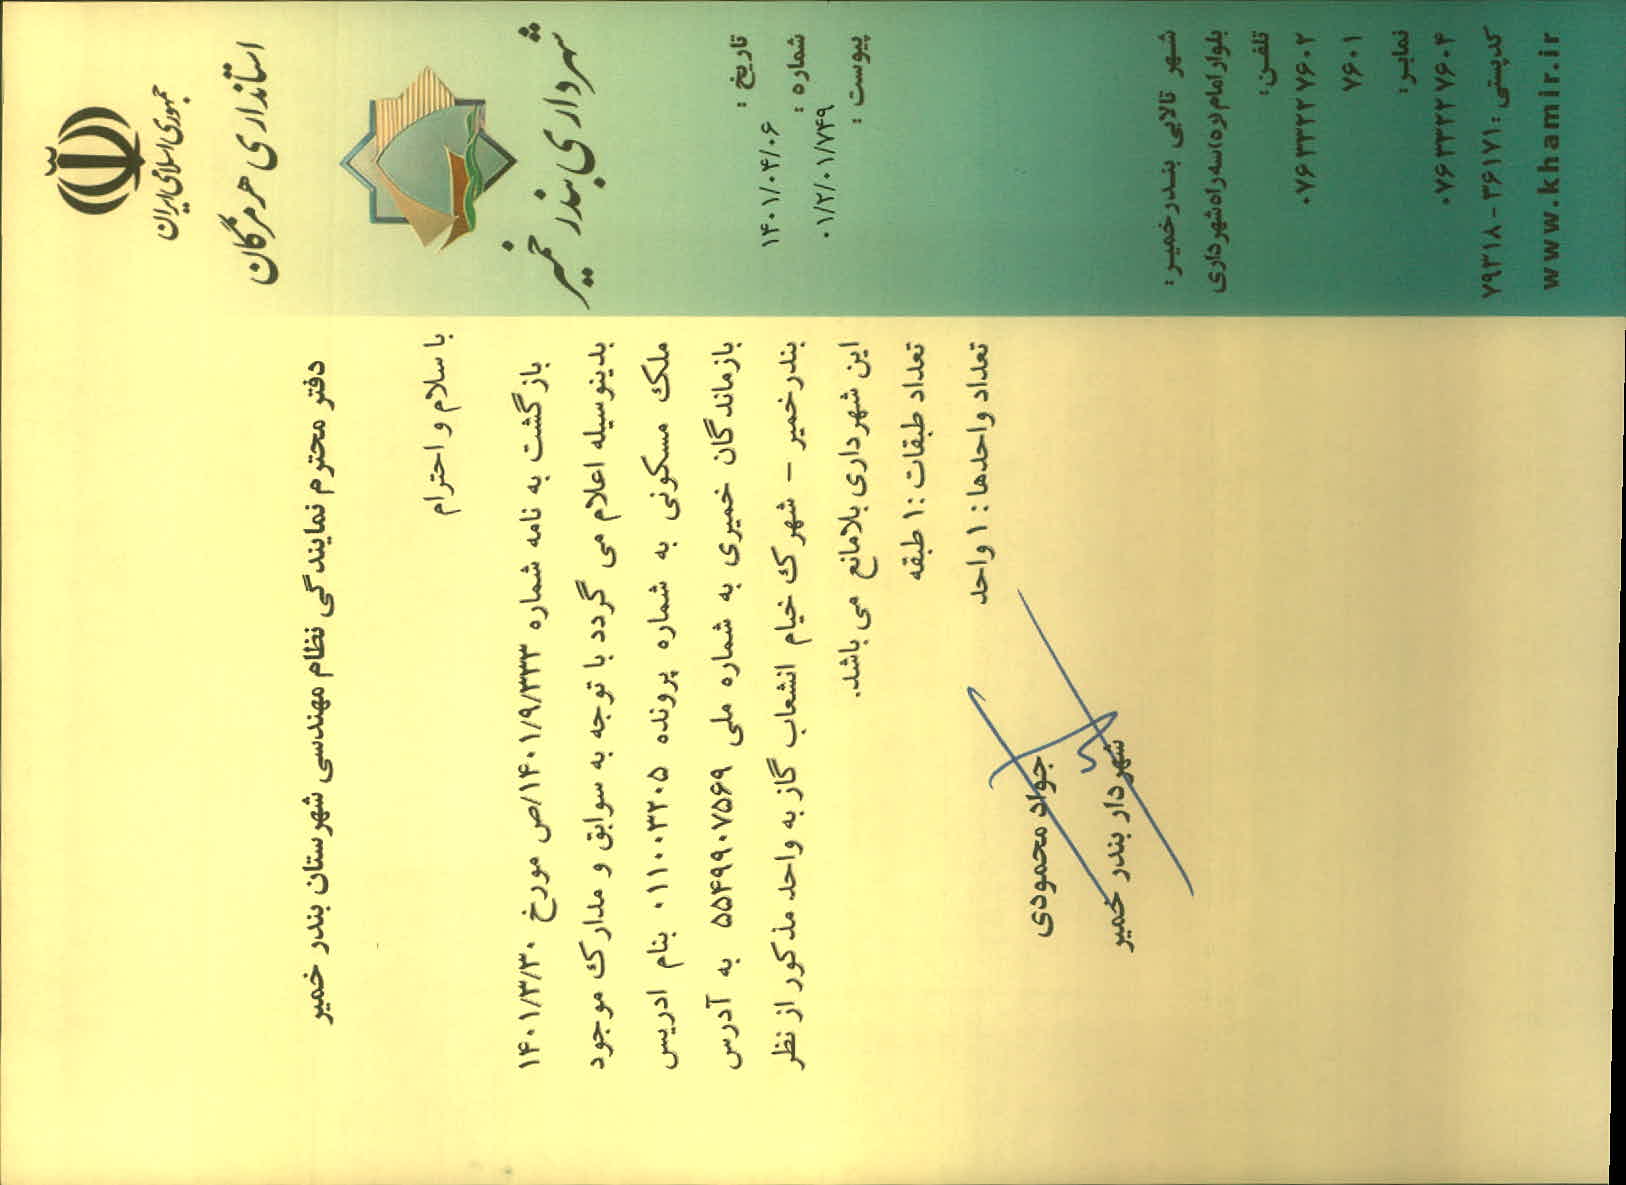 جمهوری اسلامی ایران
استانداری هرمزگان
شهرداری بندر خمیر
تاریخ :
۱۴۰۱/۰۴/۰۶
شماره :
۰۱/۲/۰۱/۷۴۹
پیوست :
دفتر محترم نمایندگی نظام مهندسی شهرستان بندر خمیر
با سلام و احترام
بازگشت به نامه شماره ۱۴۰۱/۹/۳۳۳/ص مورخ ۱۴۰۱/۳/۳۰
بدینوسیله اعلام می گردد با توجه به سوابق و مدارک موجود
ملک مسکونی به شماره پرونده ۰۱۱۰۰۳۲۰۵ بنام ادریس
بازماندگان خمیری به شماره ملی ۵۵۴۹۹۰۷۵۶۹ به آدرس
بندرخمیر – شهرک خیام انشعاب گاز به واحد مذکور از نظر
این شهرداری بلامانع می باشد.
تعداد طبقات :۱ طبقه
تعداد واحدها : ۱ واحد
جواد محمودی
شهردار بندر خمیر
شهر تالابی بندرخمیر:
بلوار امام(ره)سه راه شهرداری
تلفن:
۰۷۶۳۳۲۲۷۶۰۲
۷۶۰۱
نمابر:
۰۷۶۳۳۲۲۷۶۰۴
کدپستی :۳۶۱۷۱-۷۹۳۱۸
www.khamir.ir